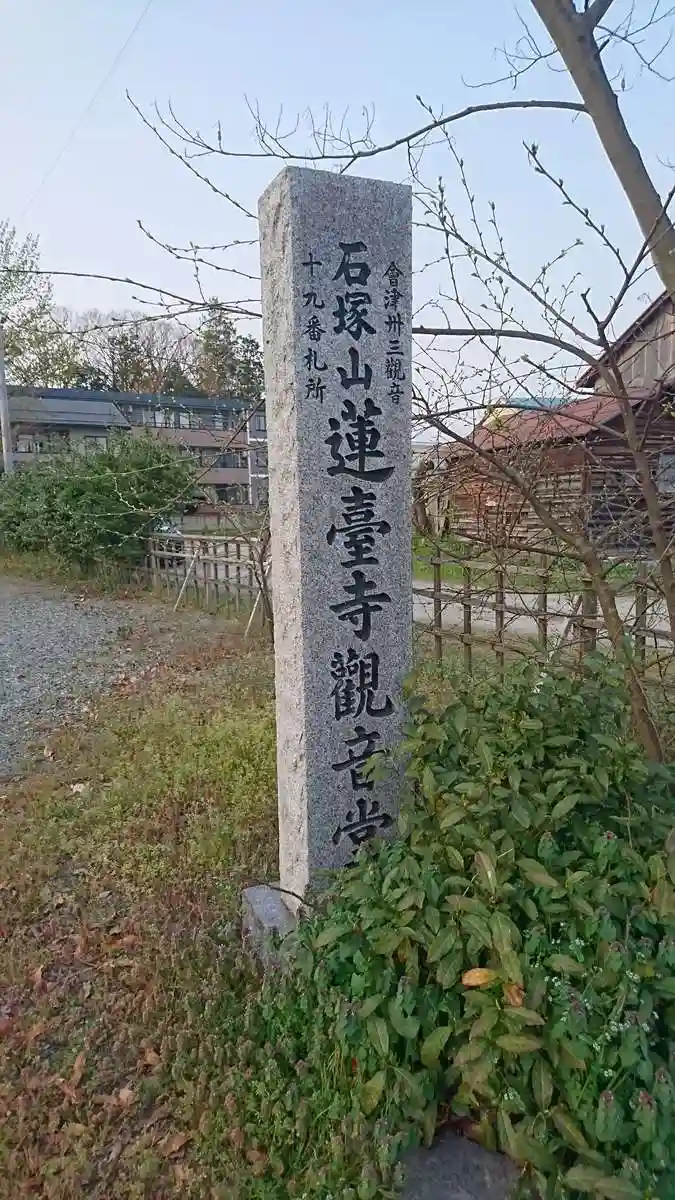 會津卅三觀音
石塚山蓮臺寺觀音堂
十九番札所